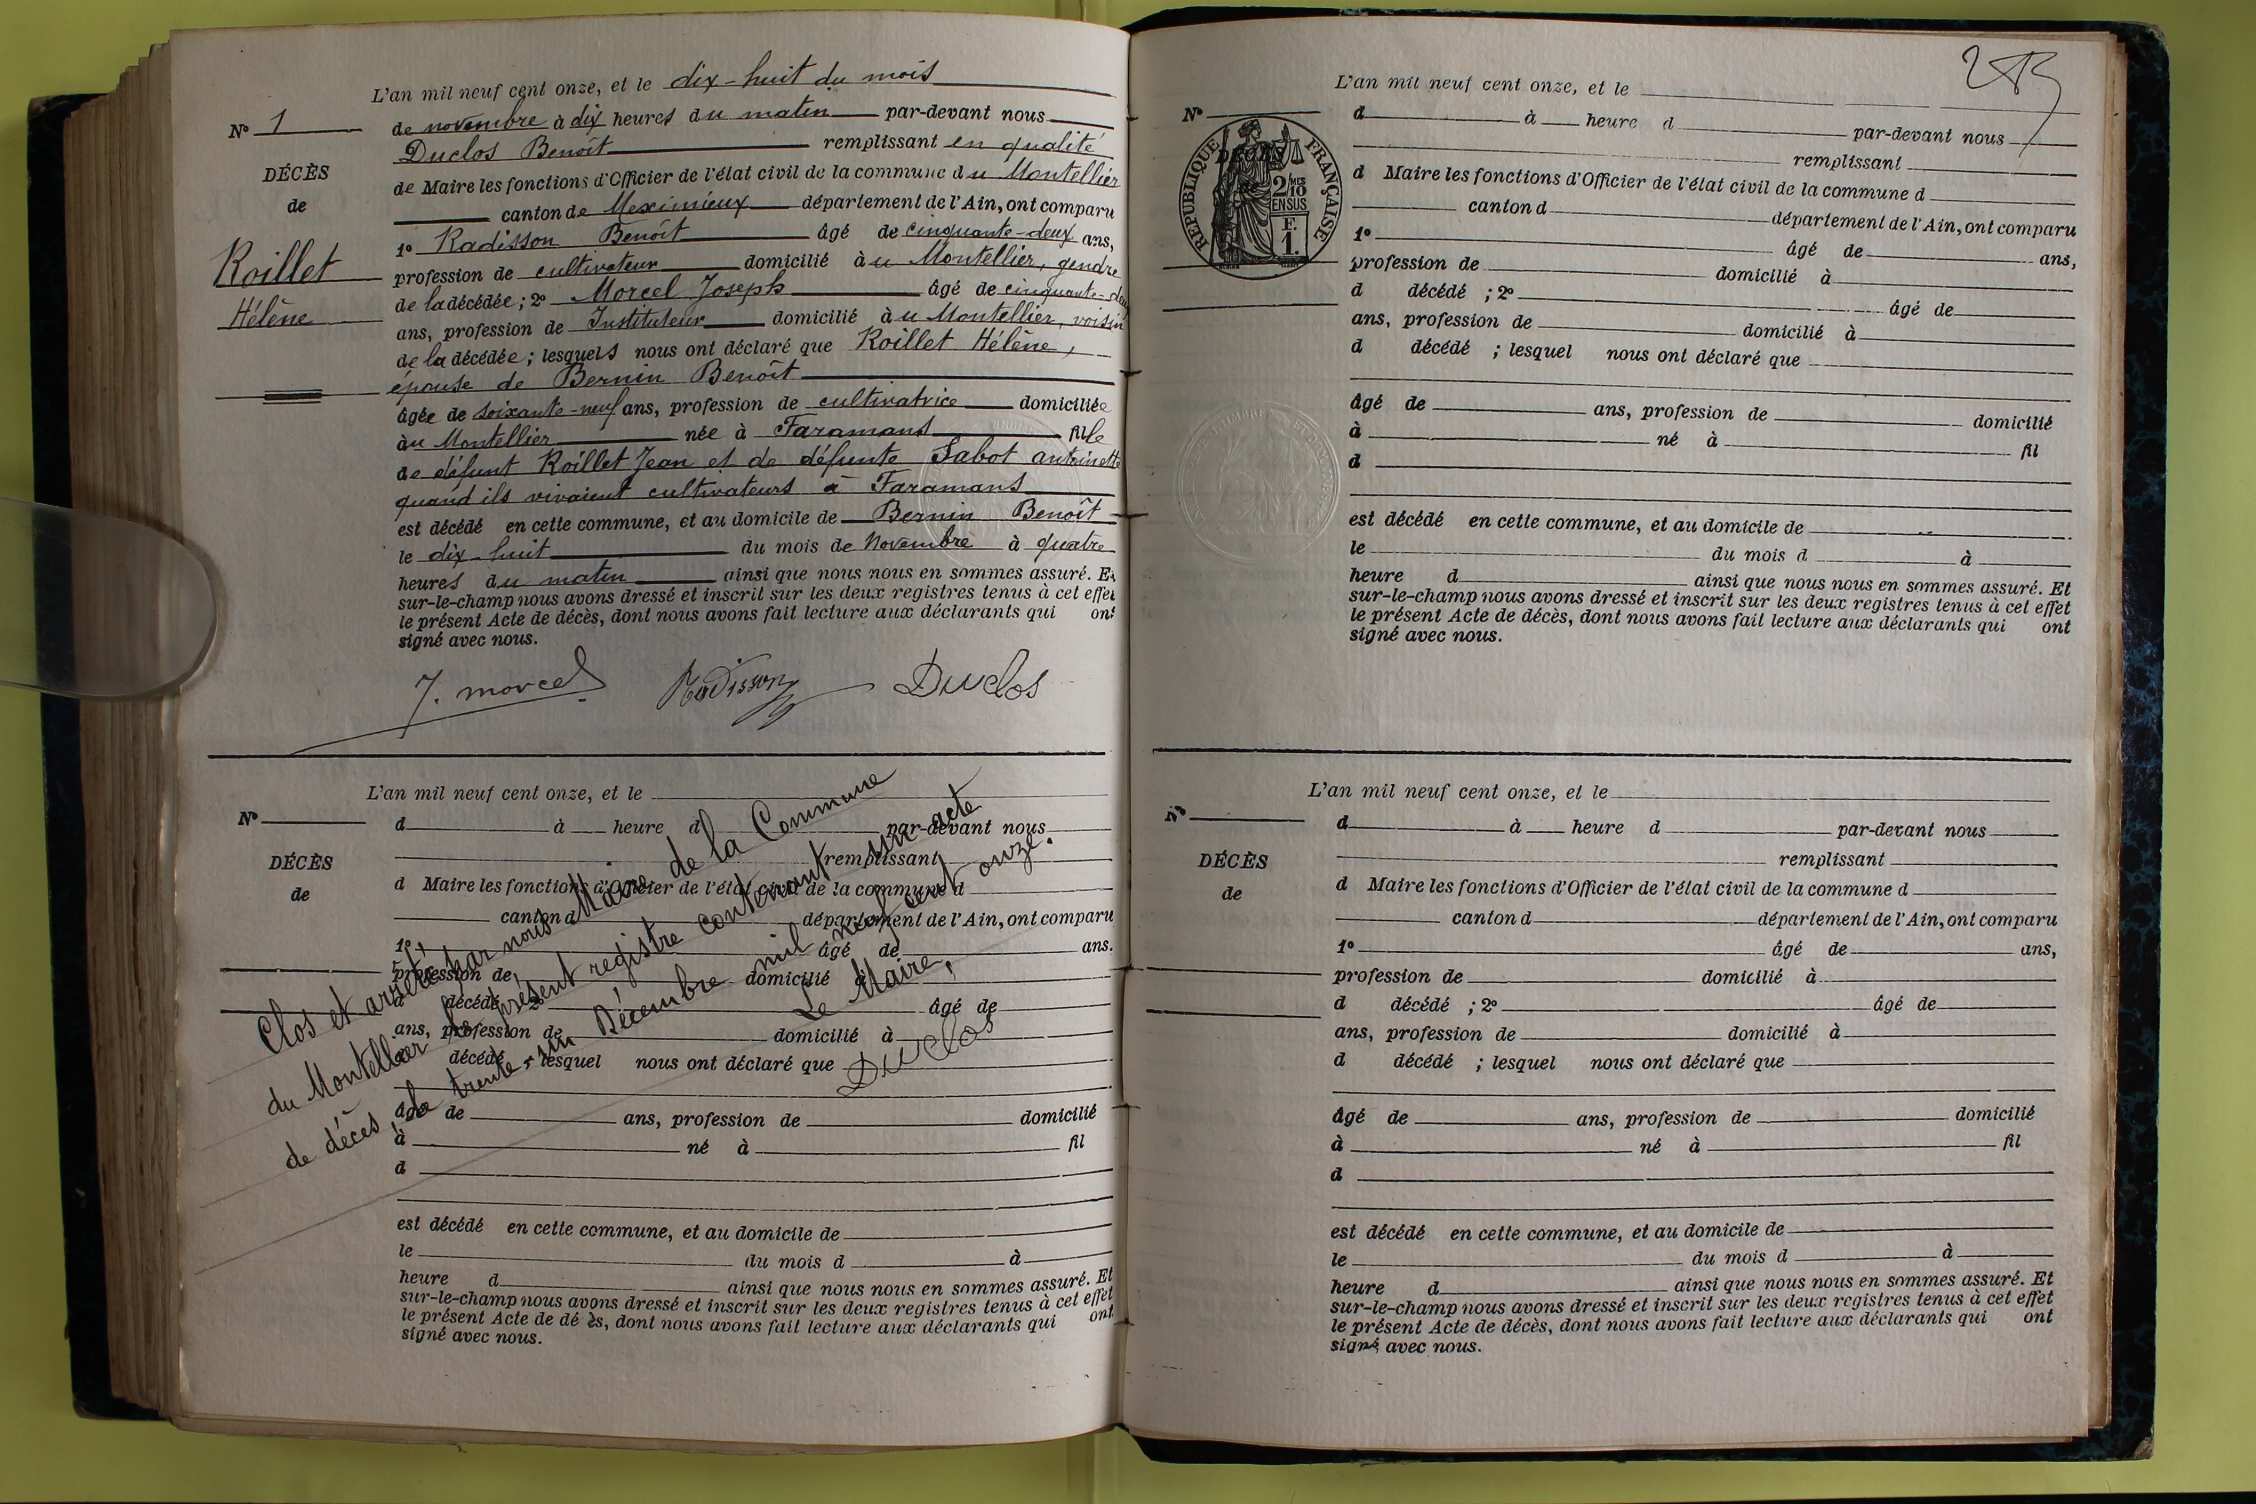 L'an mil neuf cent onze, et le dix-huit du mois
N° 1
de novembre à dix heures du matin par-devant nous
Duclos Benoît remplissant en qualité
DÉCÈS
de
de Maire les fonctions d'Officier de l'état civil de la commune du Montellier
canton de Meximieux département de l'Ain, ont comparu
Roillet
Hélène
1° Radisson Benoît âgé de cinquante-deux ans,
profession de cultivateur domicilié àu Montellier, gendre
de la décédée ; 2° Morcel Joseph âgé de cinquante-deux
ans, profession de Instituteur domicilié àu Montellier, voisin
de la décédée ; lesquels nous ont déclaré que Roillet Hélène,
épouse de Bernin Benoît
âgée de soixante-neuf ans, profession de cultivatrice domiciliée
àu Montellier née à Faramans fille
de défunt Roillet Jean et de défunte Sabot antoinette
quand ils vivaient cultivateurs à Faramans
est décédé en cette commune, et au domicile de Bernin Benoît
le dix-huit du mois de Novembre à quatre
heures du matin ainsi que nous nous en sommes assuré. Et
sur-le-champ nous avons dressé et inscrit sur les deux registres tenus à cet effet
le présent Acte de décès, dont nous avons fait lecture aux déclarants qui ont
signé avec nous.
J. morcel Radisson Duclos
L'an mil neuf cent onze, et le
N°
d à heure d par-devant nous
remplissant
DÉCÈS
de
d Maire les fonctions d'Officier de l'état civil de la commune d
canton d département de l'Ain, ont comparu
1° âgé de ans.
profession de domicilié à
d décédé ; 2° âgé de
ans, profession de domicilié à
d décédé ; lesquel nous ont déclaré que
âgé de ans, profession de domicilié
à né à fil
d
est décédé en cette commune, et au domicile de
le du mois d à
heure d ainsi que nous nous en sommes assuré. Et
sur-le-champ nous avons dressé et inscrit sur les deux registres tenus à cet effet
le présent Acte de dé ès, dont nous avons fait lecture aux déclarants qui ont
signé avec nous.
Clos et arrêté par nous Maire de la Commune
du Montellier le présent registre contenant un acte
de décès, le trente-un Décembre mil neuf cent onze.
Le Maire,
Duclos
L'an mil neuf cent onze, et le
N°
DÉCÈS
RÉPUBLIQUE FRANÇAISE
2/10 MES
EN SUS
F.
1.
d à heure d par-devant nous
remplissant
d Maire les fonctions d'Officier de l'état civil de la commune d
canton d département de l'Ain, ont comparu
1° âgé de ans,
profession de domicilié à
d décédé ; 2° âgé de
ans, profession de domicilié à
d décédé ; lesquel nous ont déclaré que
âgé de ans, profession de domicilié
à né à fil
d
est décédé en cette commune, et au domicile de
le du mois d à
heure d ainsi que nous nous en sommes assuré. Et
sur-le-champ nous avons dressé et inscrit sur les deux registres tenus à cet effet
le présent Acte de décès, dont nous avons fait lecture aux déclarants qui ont
signé avec nous.
L'an mil neuf cent onze, et le
N°
d à heure d par-devant nous
remplissant
DÉCÈS
de
d Maire les fonctions d'Officier de l'état civil de la commune d
canton d département de l'Ain, ont comparu
1° âgé de ans,
profession de domicilié à
d décédé ; 2° âgé de
ans, profession de domicilié à
d décédé ; lesquel nous ont déclaré que
âgé de ans, profession de domicilié
à né à fil
d
est décédé en cette commune, et au domicile de
le du mois d à
heure d ainsi que nous nous en sommes assuré. Et
sur-le-champ nous avons dressé et inscrit sur les deux registres tenus à cet effet
le présent Acte de décès, dont nous avons fait lecture aux déclarants qui ont
signé avec nous.